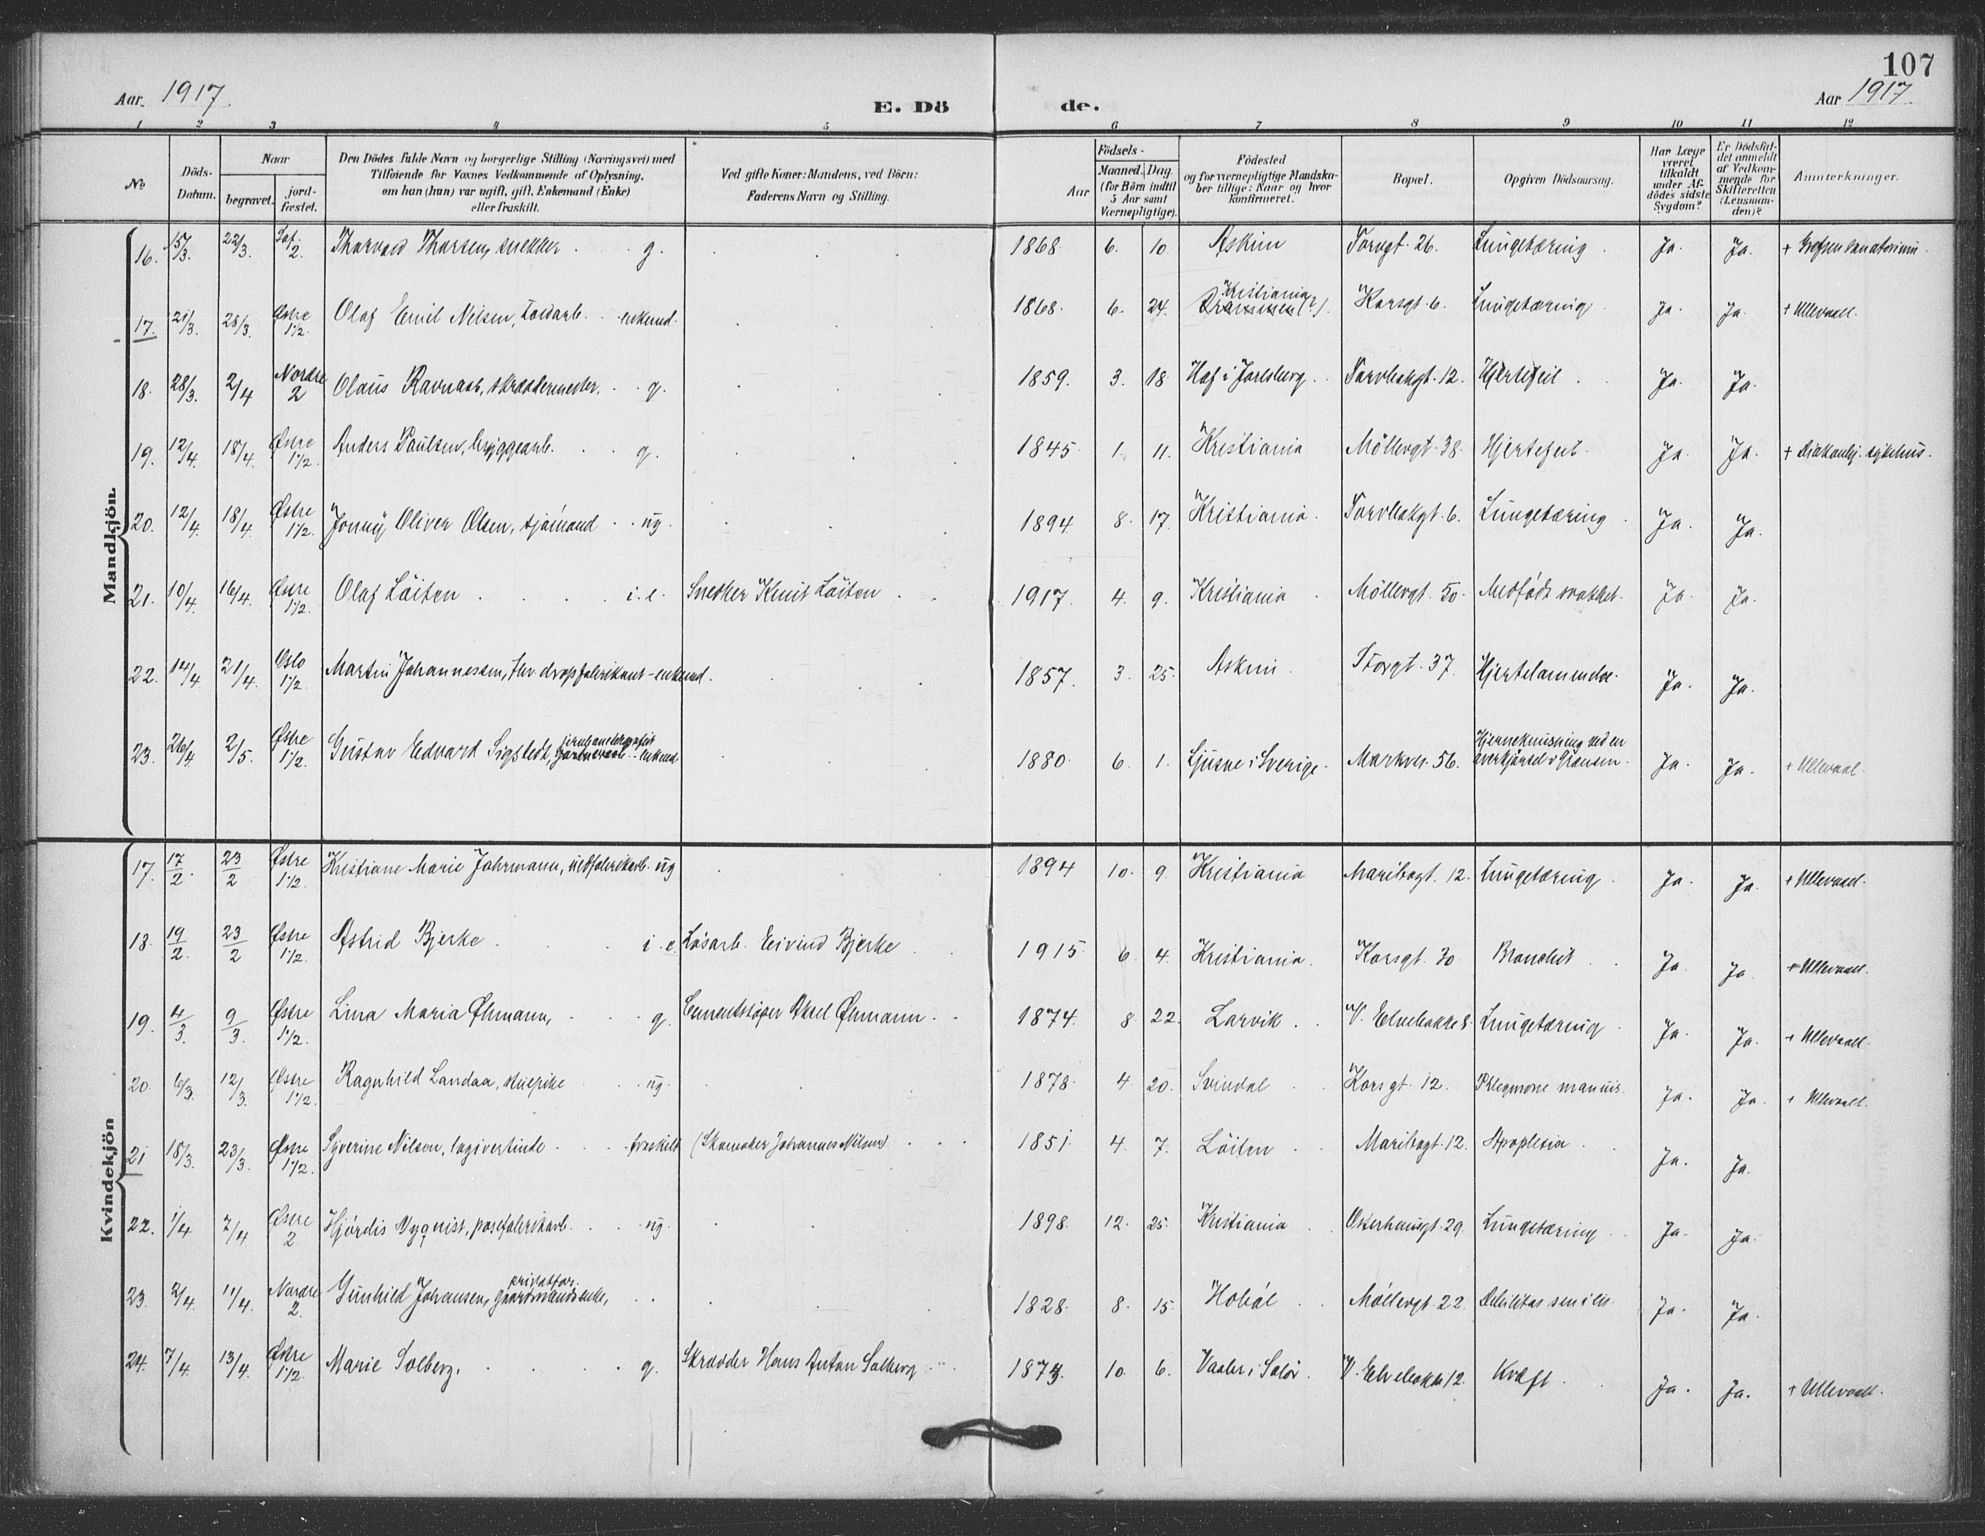 107
Aar. 1917.
E. Dö de.
Aar 1917.
1 2 3 4 5 6 7 8 9 10 11 12
No
Döds-Datum.
Naar
begravet.
jord-fæstet.
Den Dödes fulde Navn og borgerlige Stilling (Næringsvei) med
Tilföiende for Voxnes Vedkommende af Oplysning,
om han (hun) var ugift, gift, Enkemand (Enke)
eller fraskilt.
Ved gifte Koner: Mandens, ved Börn:
Faderens Navn og Stilling.
Födsels-
Aar
Maaned. Dag.
(for Börn indtil
5 Aar samt
Værnepligtige).
Födested
og for værnepligtige Mandska-
ber tillige: Naar og hvor
konfirmeret.
Bopæl.
Opgiven Dödsaarsag.
Har Læge
været
tilkaldt
under Af-
dödes sidste
Sygdom?
Er Dödsfal-
det anmeldt
af Vedkom-
mende for
Skifteretten
(Lensman-
den)?
Anmerkninger.
Mandkjön.
16. 15/3. 22/3. 2. Thorvald Thorsen, snekker g. 1868. 6. 10. Askim Torvgt. 26. Lungetæring Ja. Ja. + Grefsen sanatorium.
17. 21/3. 28/3. Østre 1½. Olaf Emil Nilsen, enkemd. 1868. 6. 24. Kristiania (?). Korsgt. 6. Lungetæring Ja. Ja. + Ullevaal.
18. 28/3. 2/4 Nordre 2 Olaus Ravnaas, skræddermester. g. 1859. 3. 18. Hof i Jarlsberg. Torvbakgt. 12. Hjertefeil. Ja. Ja.
19. 12/4. 18/4. Østre 1½. Anders Paulsen, bryggearb. g. 1845. 1. 11. Kristiania Möllergt. 38. Hjertefeil. Ja. Ja. + Diakonhj. sykehus.
20. 12/4. 18/4. Østre 1½. Jonny Oliver Olsen, sjömand ug. 1894. 8. 17. Kristiania. Torvbakgt. 6. Lungetæring. Ja. Ja.
21. 10/4. 16/4. Østre 1½. Olaf Löiten i.e. Snekker Knut Löiten 1917. 4. 9. Kristiania Möllergt. 50. Medfödt svakhet. Ja. Ja.
22. 14/4. 21/4. Oslo 1½. Martin Johannessen, fhv. dropsfabrikant - enkemd. 1857. 3. 25. Askim. Storgt. 37. Hjertelammelse. Ja. Ja.
23. 26/4. 2/5. Østre 1½. Gustav Edvard Sigstedt, enkemd. 1880. 6. 1. Ljusne i Sverige. Markvei. 56. Hjerneknusning ved en
overkjörsel i Grænsen. Ja. Ja. + Ullevaal.
Kvindekjön
17. 17/2. 23/2 Østre 1½. Kristiane Marie Jahrmann, ug 1894 10. 9. Kristiania Maribogt. 12. Lungetæring. Ja. Ja. + Ullevaal.
18. 19/2. 23/2 Østre 1½. Astrid Bjerke. i.e. Løsarb. Eivind Bjerke 1915. 6. 4. Kristiania. Korsgt. 30. Bronchit Ja. Ja. + Ullevaal.
19. 4/3. 9/3. Østre 1½. Lina Maria Øhmann, g. Cementstöper Axel Øhmann 1874. 8. 22. Larvik. V. Elvebakke 8. Lungetæring Ja. Ja. + Ullevaal.
20. 6/3. 12/3. Østre 1½. Ragnhild Landaa, ug. 1878. 4. 20. Svindal Korsgt. 12. Phlegmone manus. Ja. Ja. + Ullevaal.
21 18/3. 23/3. Østre 1½. Syverine Nilsen, logivertinde fraskilt (Skomaker Johannes Nilsen) 1851. 4. 7. Löiten Maribogt. 12. Apoplexia Ja. Ja.
22. 1/4 7/4 Østre 2 Hjördis Nyqvist, posefabrikarb. ug. 1898. 12. 25. Kristiania Osterhausgt. 29. Lungetæring Ja. Ja.
23. 2/4. 11/4. Nordre 2. Gunhild Johansen, privatfor. gaardmandsenke, 1828. 8. 15. Hobøl Möllergt. 22. Debilitas senilis. Ja. Ja.
24. 7/4. 13/4. Østre 1½. Marie Solberg. g. Skrædder Hans Anton Solberg 1873. 10. 6. Vaaler i Solör. V. Elvebakke 12. Kræft. Ja. Ja. + Ullevaal.